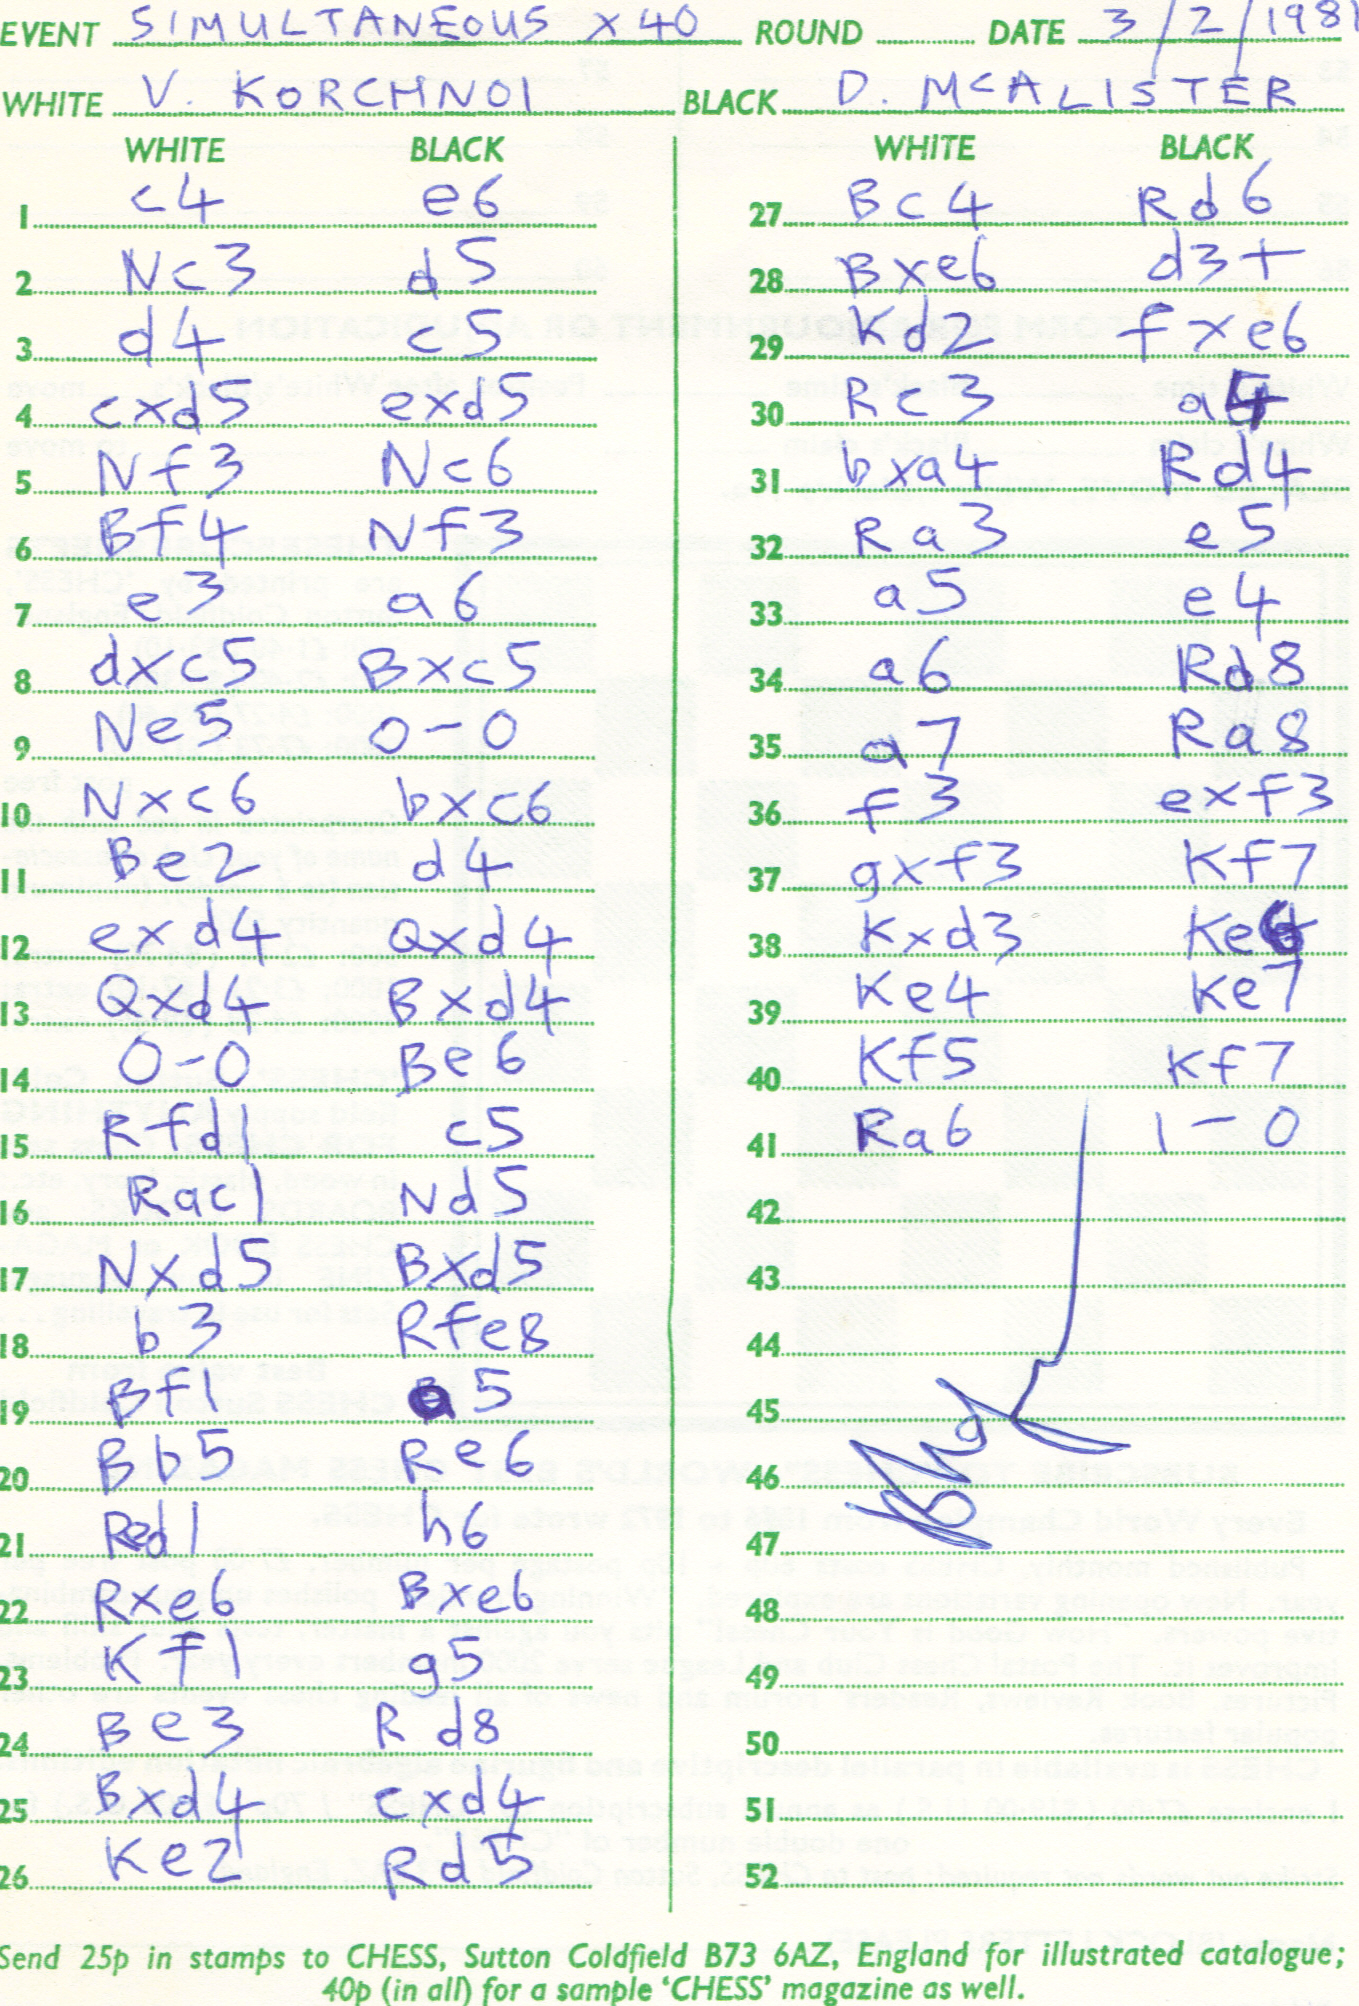 EVENT SIMULTANEOUS X 40 ROUND DATE 3/2/1981
WHITE V. KORCHNOI BLACK D. McALISTER
WHITE BLACK
1 c4 e6
2 Nc3 d5
3 d4 c5
4 cxd5 exd5
5 Nf3 Nc6
6 Bf4 Nf3
7 e3 a6
8 dxc5 Bxc5
9 Ne5 0-0
10 Nxc6 bxc6
11 Be2 d4
12 exd4 Qxd4
13 Qxd4 Bxd4
14 0-0 Be6
15 Rfd1 c5
16 Rac1 Nd5
17 Nxd5 Bxd5
18 b3 Rfe8
19 Bf1 a5
20 Bb5 Re6
21 Red1 h6
22 Rxe6 Bxe6
23 Kf1 g5
24 Be3 Rd8
25 Bxd4 cxd4
26 Ke2 Rd5
WHITE BLACK
27 Bc4 Rd6
28 Bxe6 d3+
29 Kd2 fxe6
30 Rc3 a4
31 bxa4 Rd4
32 Ra3 e5
33 a5 e4
34 a6 Rd8
35 a7 Ra8
36 f3 exf3
37 gxf3 Kf7
38 Kxd3 Ke6
39 Ke4 Ke7
40 Kf5 Kf7
41 Ra6 1-0
42
43
44
45
46
47
48
49
50
51
52
Send 25p in stamps to CHESS, Sutton Coldfield B73 6AZ, England for illustrated catalogue;
40p (in all) for a sample 'CHESS' magazine as well.